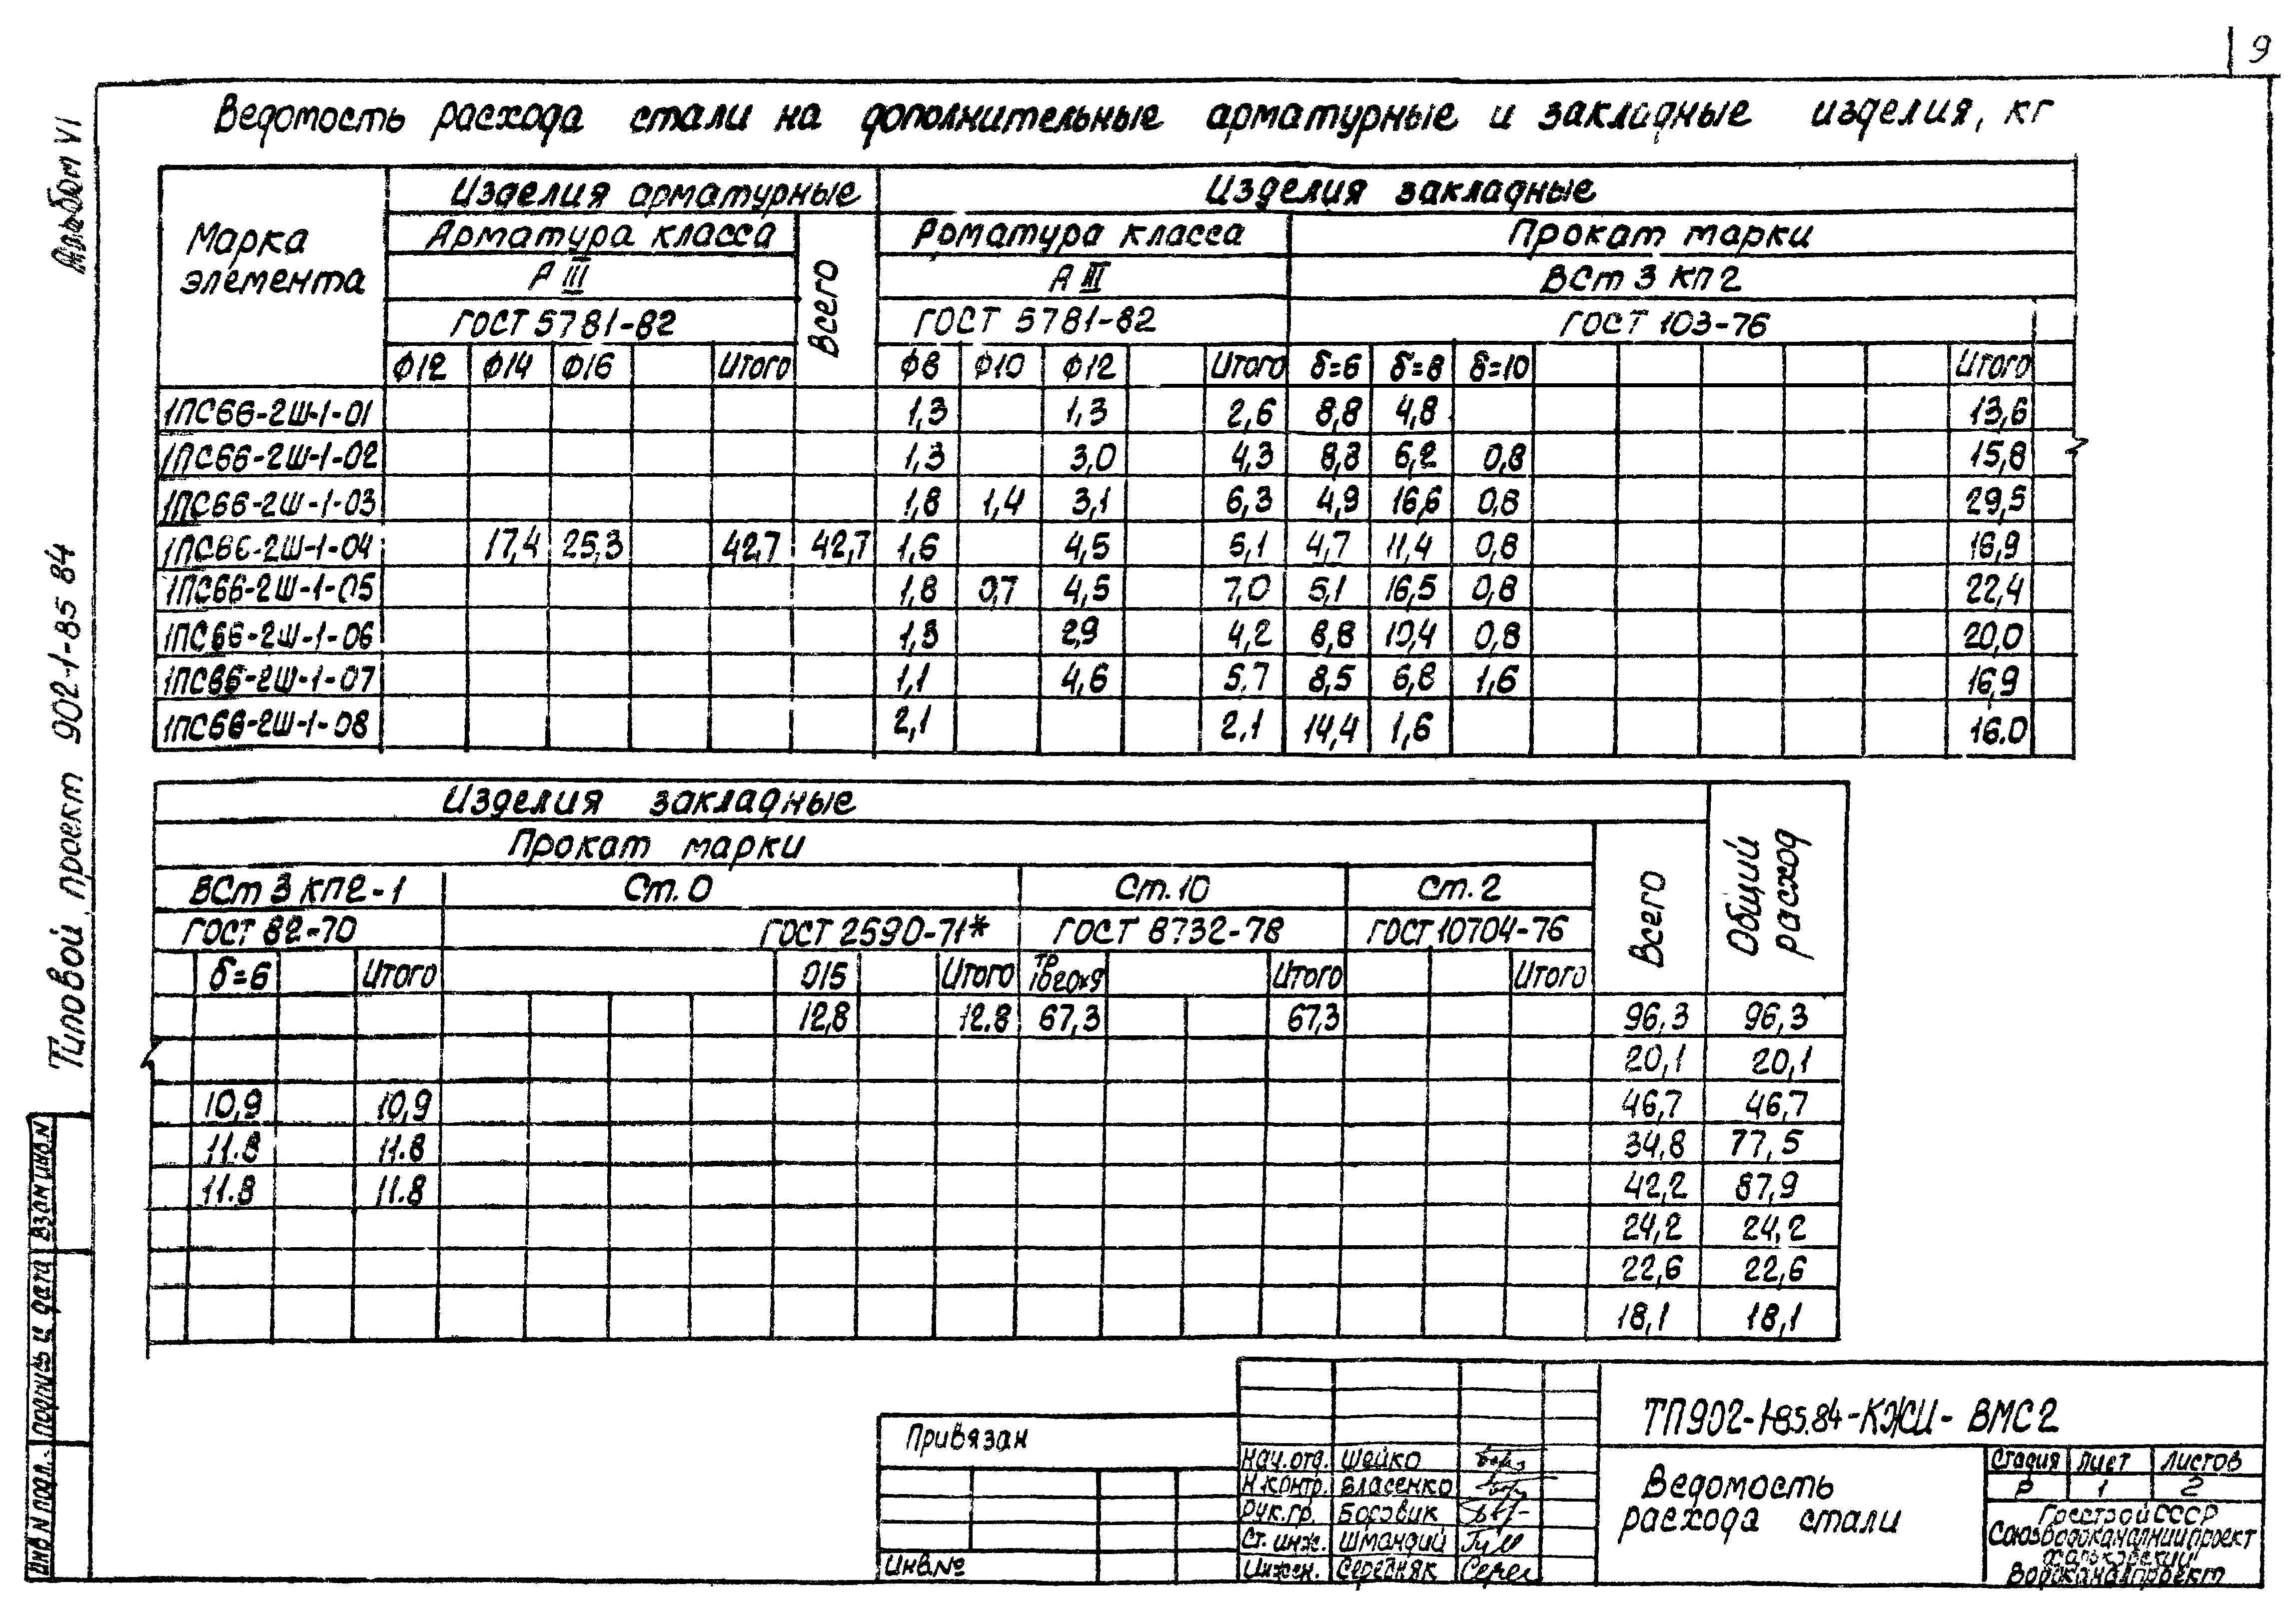 9
Ведомость расхода стали на дополнительные арматурные и закладные изделия, кг
Альбом VI
Типовой проект 902-1-85 84
Марка элемента
Изделия арматурные
Изделия закладные
Арматура класса
Всего
Арматура класса
Прокат марки
А III
А III
ВСт 3 КП 2
ГОСТ 5781-82
ГОСТ 5781-82
ГОСТ 103-76
Ф12 Ф14 Ф16 Итого Ф8 Ф10 Ф12 Итого δ=6 δ=8 δ=10 Итого
1ПС66-2Ш-1-01 1,3 1,3 2,6 8,8 4,8 13,6
1ПС66-2Ш-1-02 1,3 3,0 4,3 8,8 6,2 0,8 15,8
1ПС66-2Ш-1-03 1,8 1,4 3,1 6,3 4,9 16,6 0,8 29,5
1ПС66-2Ш-1-04 17,4 25,3 42,7 42,7 1,6 4,5 6,1 4,7 11,4 0,8 16,9
1ПС66-2Ш-1-05 1,8 0,7 4,5 7,0 5,1 16,5 0,8 22,4
1ПС66-2Ш-1-06 1,3 2,9 4,2 8,8 10,4 0,8 20,0
1ПС66-2Ш-1-07 1,1 4,6 5,7 8,5 6,8 1,6 16,9
1ПС66-2Ш-1-08 2,1 2,1 14,4 1,6 16.0
Изделия закладные
Общий расход
Прокат марки
Всего
ВСт 3 КП2-1 Ст.0 Ст.10 Ст.2
ГОСТ 82-70 ГОСТ 2590-71* ГОСТ 8732-78 ГОСТ 10704-76
δ=6 Итого Итого Итого Итого
12,8 12.8 67,3 67,3 96,3 96,3
20,1 20,1
10,9 10,9 46,7 46,7
11.8 11.8 34,8 77,5
11.8 11.8 42,2 87,9
24,2 24,2
22,6 22,6
18,1 18,1
Инв N подл. Подпись и дата Взам инв.N
Привязан
Инв№
Нач. отд. Шейко
Н контр. Власенко
Рук. гр. Боровик
Ст. инж. Шмандий
Инжен. Середняк
ТП902-1-85.84-КЖИ-ВМС2
Ведомость
расхода стали
Стадия Лист Листов
Р 1 2
Госстрой СССР
Союзводоканалниипроект
Харьковский
Водоканалпроект